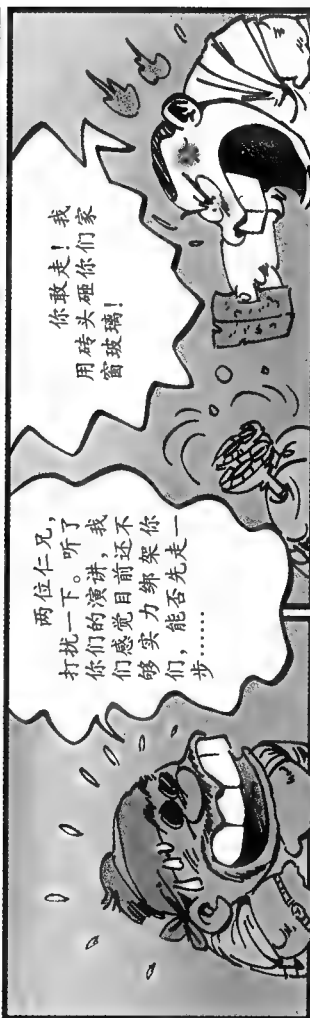 两位仁兄，
打扰一下。听了
你们的演讲，我
们感觉目前还不
够实力绑架你
们，能否先走一
步……
你敢走！我
用砖头砸你们家
窗玻璃！